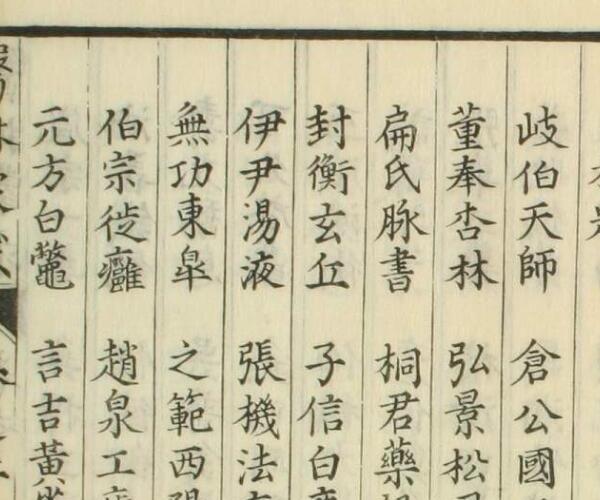 岐伯天師 倉公國
董奉杏林 弘景松
扁氏脉書 桐君藥
封衡玄丘 子信白
伊尹湯液 張機法
無功東皐 之範西
伯宗徙癰 趙泉工
元方白鼈 言吉黃